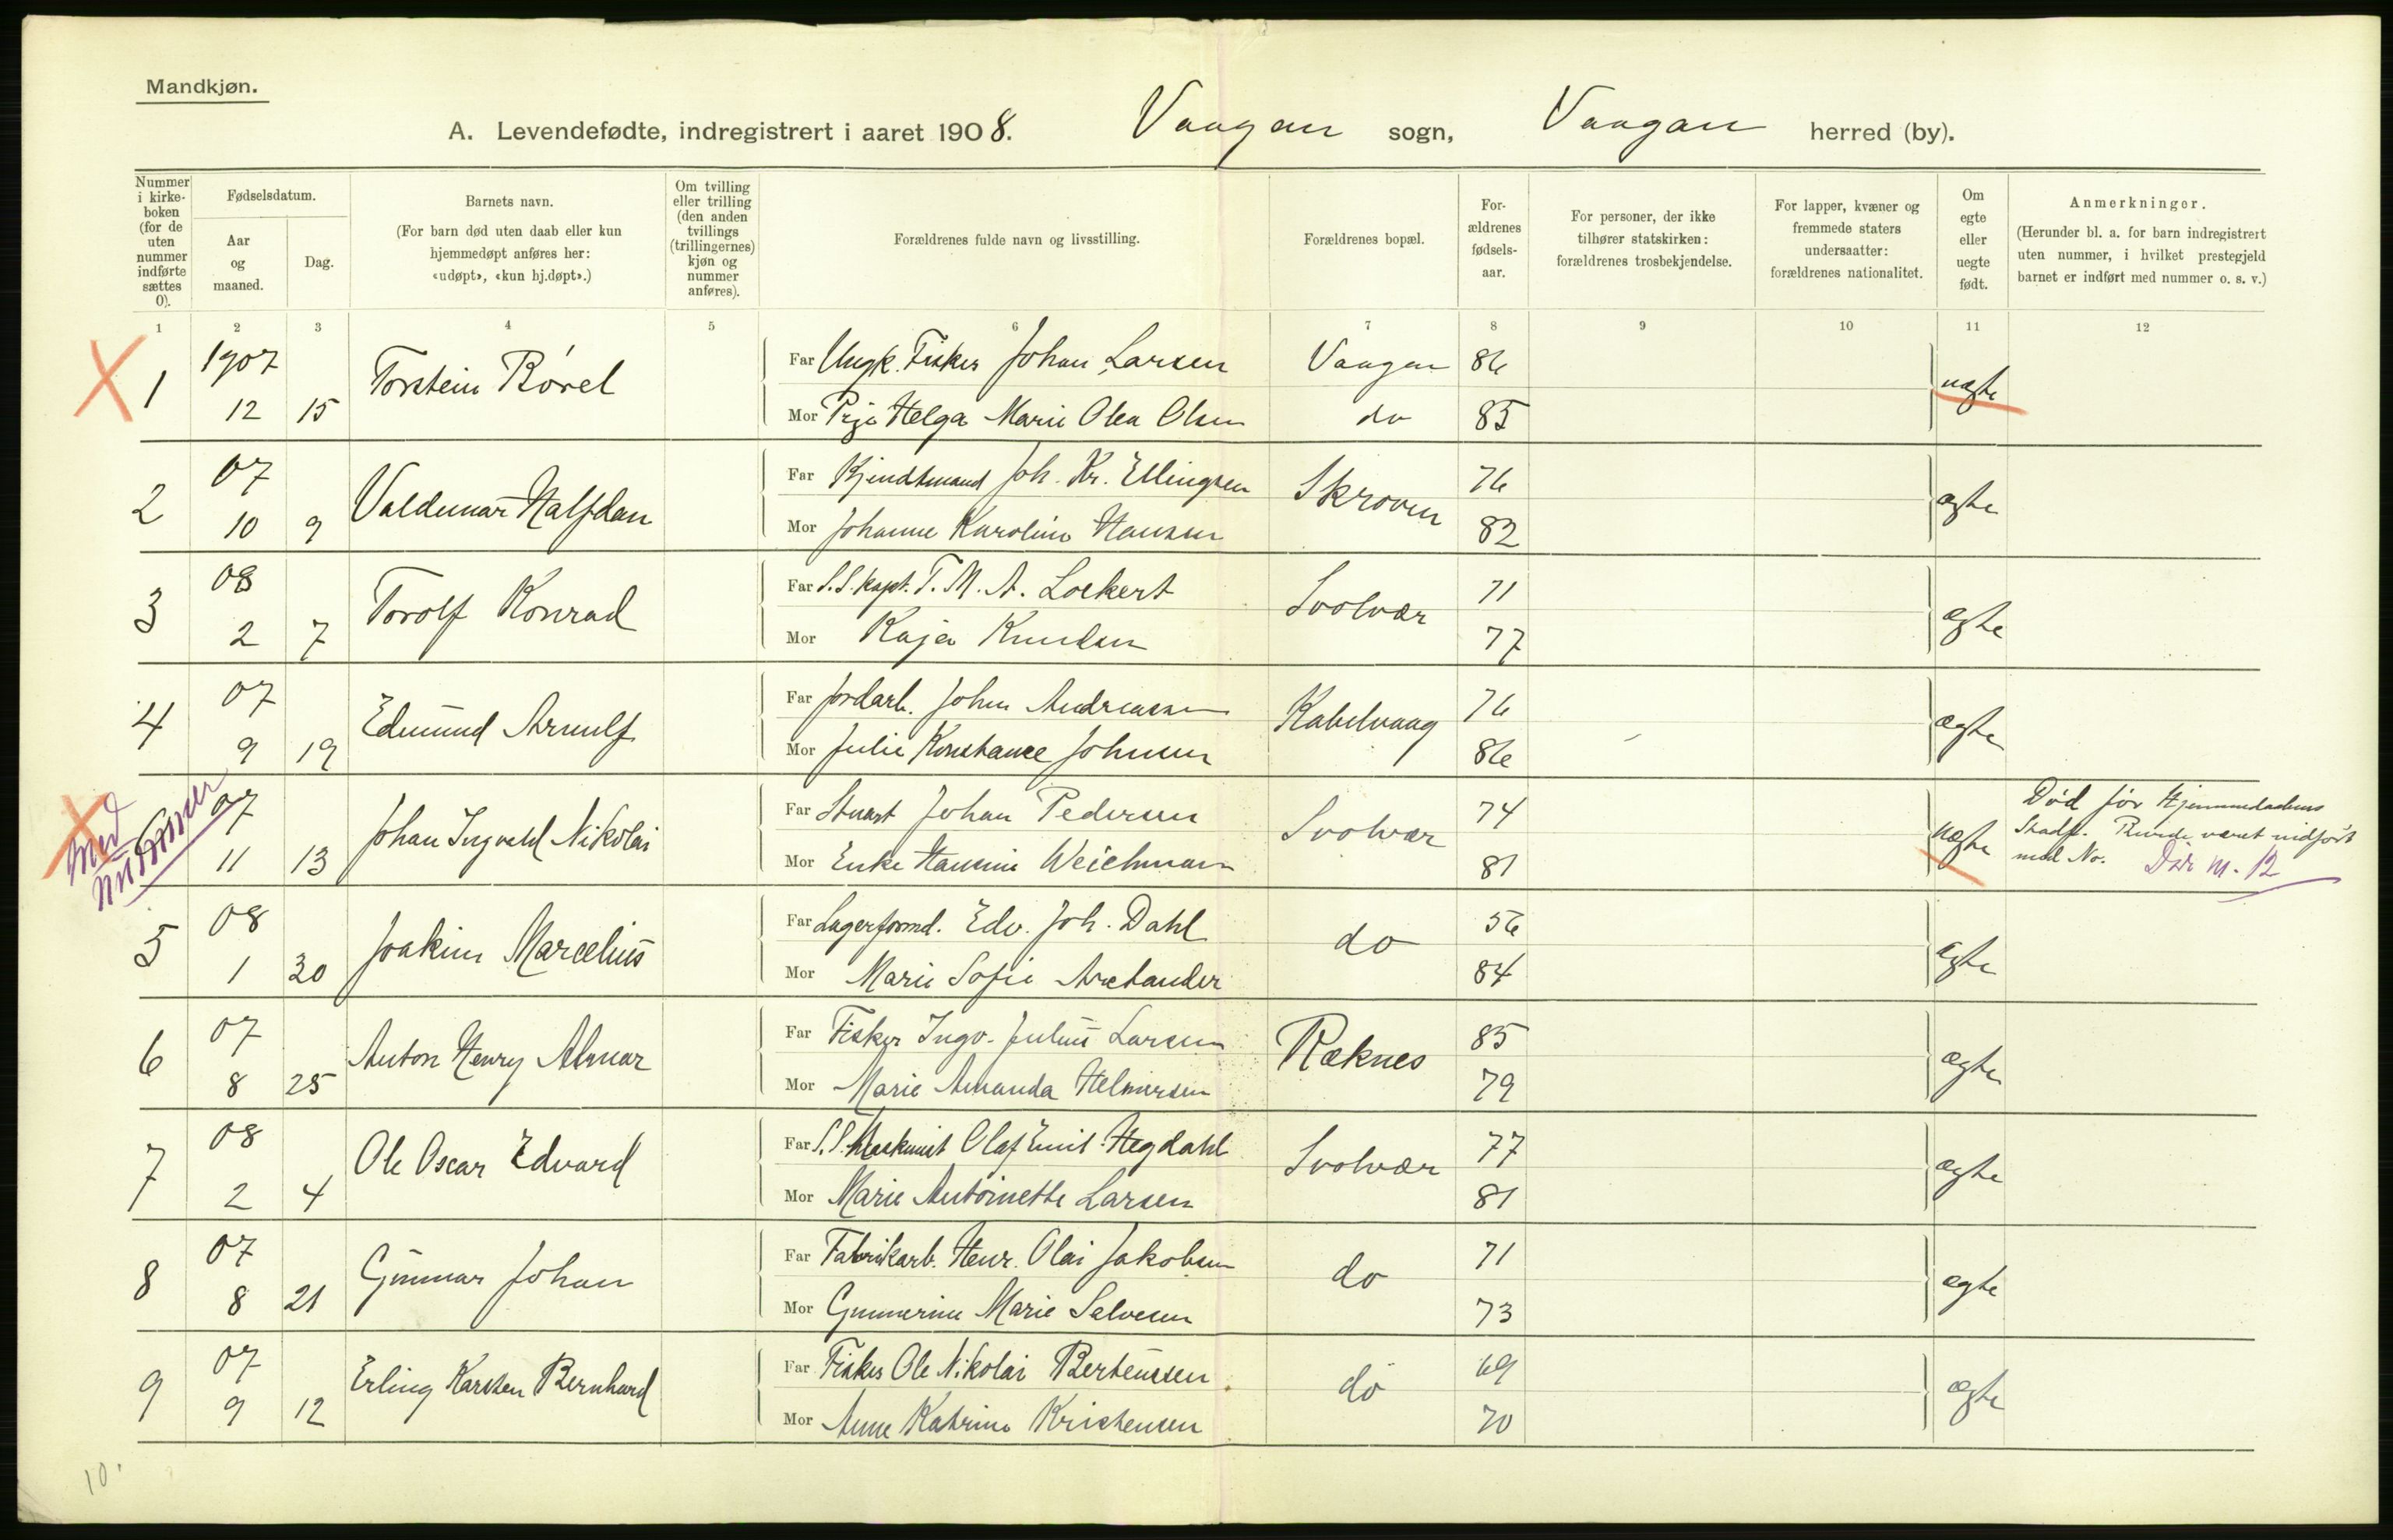 Mandkjøn.
A. Levendefødte, indregistrert i aaret 1908. Vaagan sogn, Vaagan herred (by).
Nummer i kirkeboken (for de uten nummer indførte sættes 0).
Fødselsdatum.
Aar og maaned.
Dag.
Barnets navn.
(For barn død uten daab eller kun hjemmedøpt anføres her: «udøpt», «kun hj.døpt».)
Om tvilling eller trilling (den anden tvillings (trillingernes) kjøn og nummer anføres).
Forældrenes fulde navn og livsstilling.
Forældrenes bopæl.
Forældrenes fødselsaar.
For personer, der ikke tilhører statskirken: forældrenes trosbekjendelse.
For lapper, kvæner og fremmede staters undersaatter: forældrenes nationalitet.
Om egte eller uegte født.
Anmerkninger.
(Herunder bl. a. for barn indregistrert uten nummer, i hvilket prestegjeld barnet er indført med nummer o. s. v.)
1 2 3 4 5 6 7 8 9 10 11 12
1 1907 12 15 Torstein Borel
Far Ungk. Fisker Johan Larsen Vaagan 86 uægte
Mor Pige Helga Marie Olea Olsen do 85
2 07 10 9 Valdemar Halfdan
Far Joh. Kr. Ellingsen Skroven 76 ægte
Mor Johanne Karoline Hansen 82
3 08 2 7 Torolf Konrad
Far S.S. kapt. T. M. A. Lockert Svolvær 71 ægte
Mor Kaja Knudsen 77
4 07 9 19 Edmund Arnulf
Far Jordarb. Johan Andreassen Kabelvaag 76 ægte
Mor Julie Konstance Johnsen 86
Med nummer
07 11 13 Johan Ingvald Nikolai
Far Stuert Johan Pedersen Svolvær 74 uægte
Mor Enke Hansine Weichmann 81
Død før Hjemmedaabens
Stadf. Burde været indført
med No. Død M. 12
5 08 1 30 Joakim Marcelius
Far Lagerformd. Edv. Joh. Dahl do 56 ægte
Mor Marie Sofie Arctander 84
6 07 8 25 Anton Henry Almar
Far Fisker Ingv. Julius Larsen Ræknes 85 ægte
Mor Marie Amanda Helmersen 79
7 08 2 4 Ole Oscar Edvard
Far S.S. Maskinist Olaf Emil Hegdahl Svolvær 77 ægte
Mor Marie Antoinette Larsen 81
8 07 8 21 Gunnar Johan
Far Fabrikarb. Henr. Olai Jakobsen do 71 ægte
Mor Gunnerine Marie Salvesen 73
9 07 9 12 Erling Karsten Bernhard
Far Fisker Ole Nikolai Berteussen do 69 ægte
Mor Anne Katrine Kristensen 70
10.